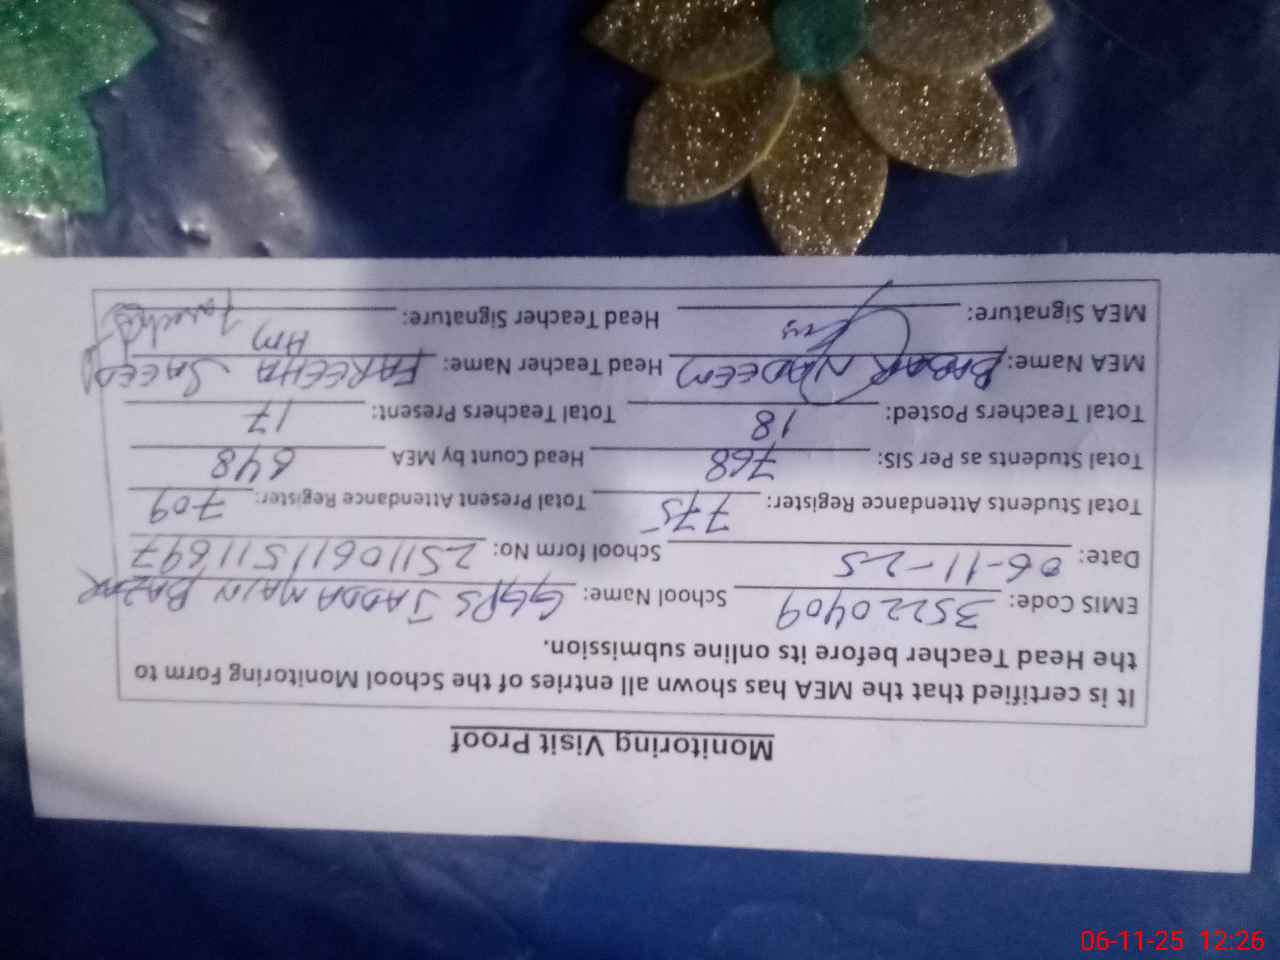 Monitoring Visit Proof
It is certified that the MEA has shown all entries of the School Monitoring Form to
the Head Teacher before its online submission.
EMIS Code: 35220409 School Name: GGPS JADDA MAIN BAZAR
Date: 06-11-25 School form No: 2511061151 1697
Total Students Attendance Register: 775 Total Present Attendant Register: 709
Total Students as Per SIS: 768 Head Count by MEA 648
Total Teachers Posted: 18 Total Teachers Present: 17
MEA Name: BABAR NADEEM Head Teacher Name: FAREEHA SAEED
HM
MEA Signature: Head Teacher Signature: Fareeha
06-11-25 12:26